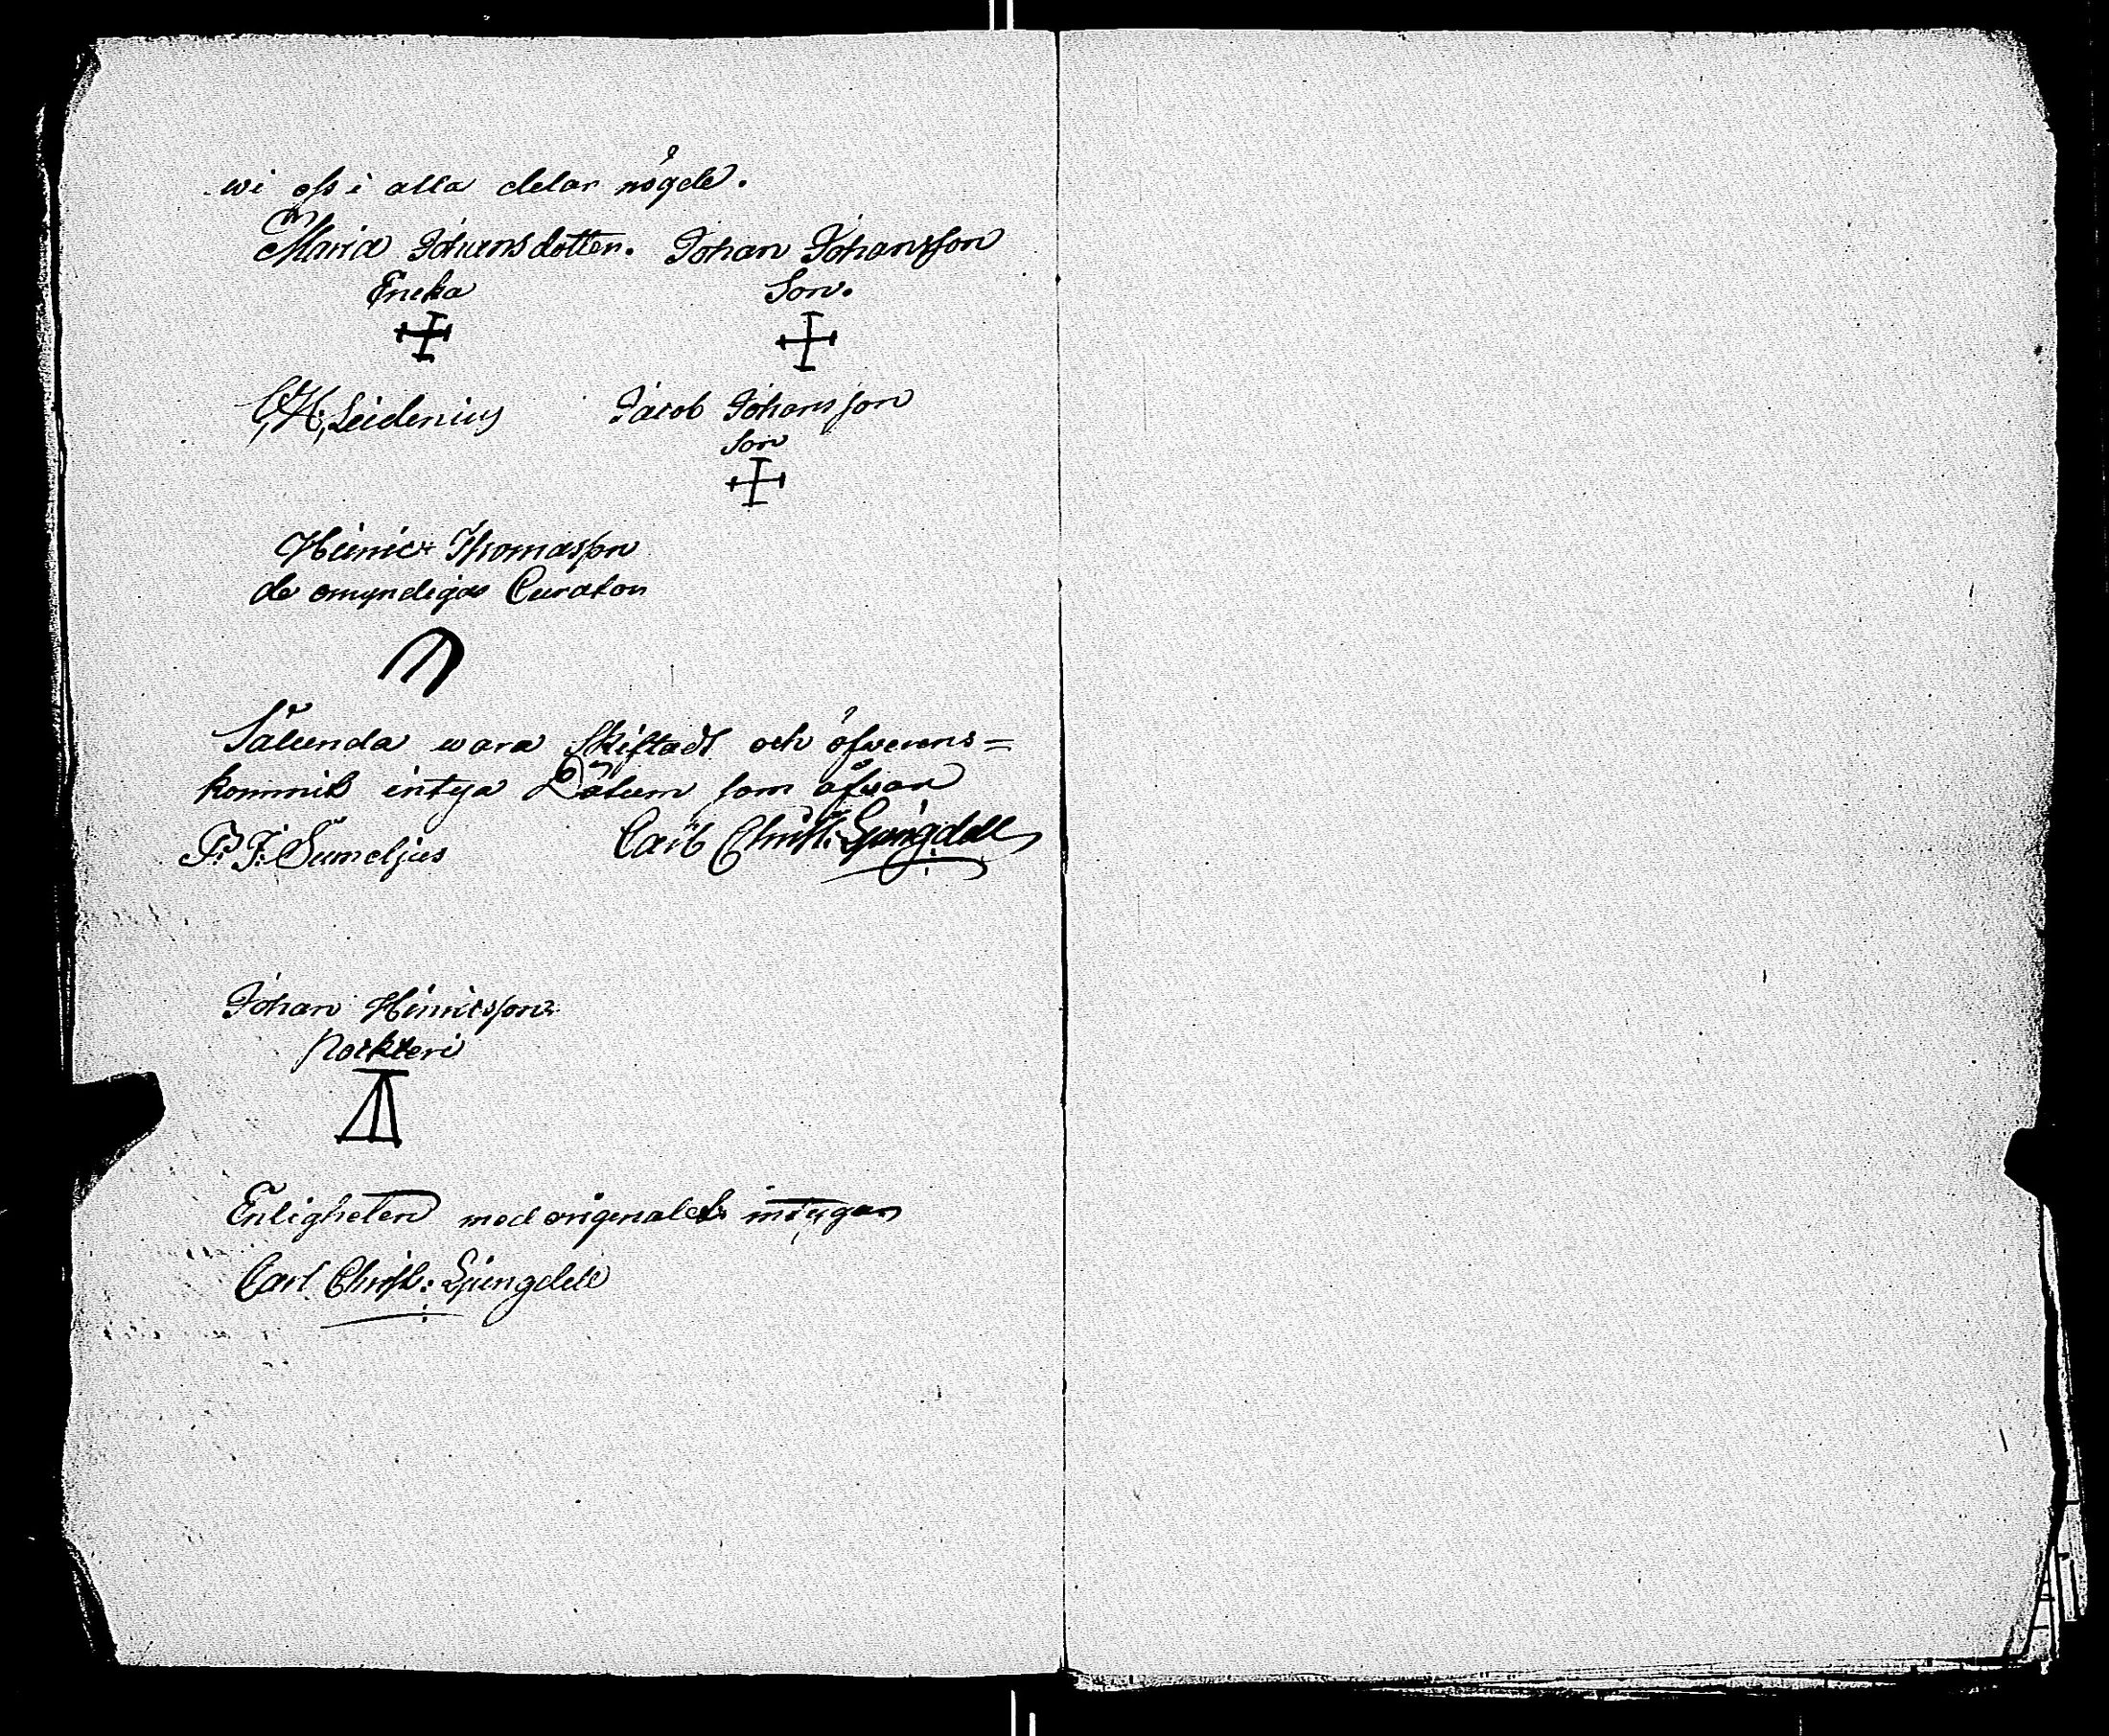 wi oss i alla delar nögde.
Maria Johansdotter. Johan Johansson
Encka Son.
C. H. Leidenius Jacob Johansson
Son
Hinric Thomasson
de omyndigas Curator
Sålunda wara Skiftadt och öfwerens=
kommit intyga Datum som ofwan
P. J. Sumeljus Carl Christ: Ljungdell
Johan Hinricsson
Enligheten med originalet intygar
Carl Christ: Ljungdell